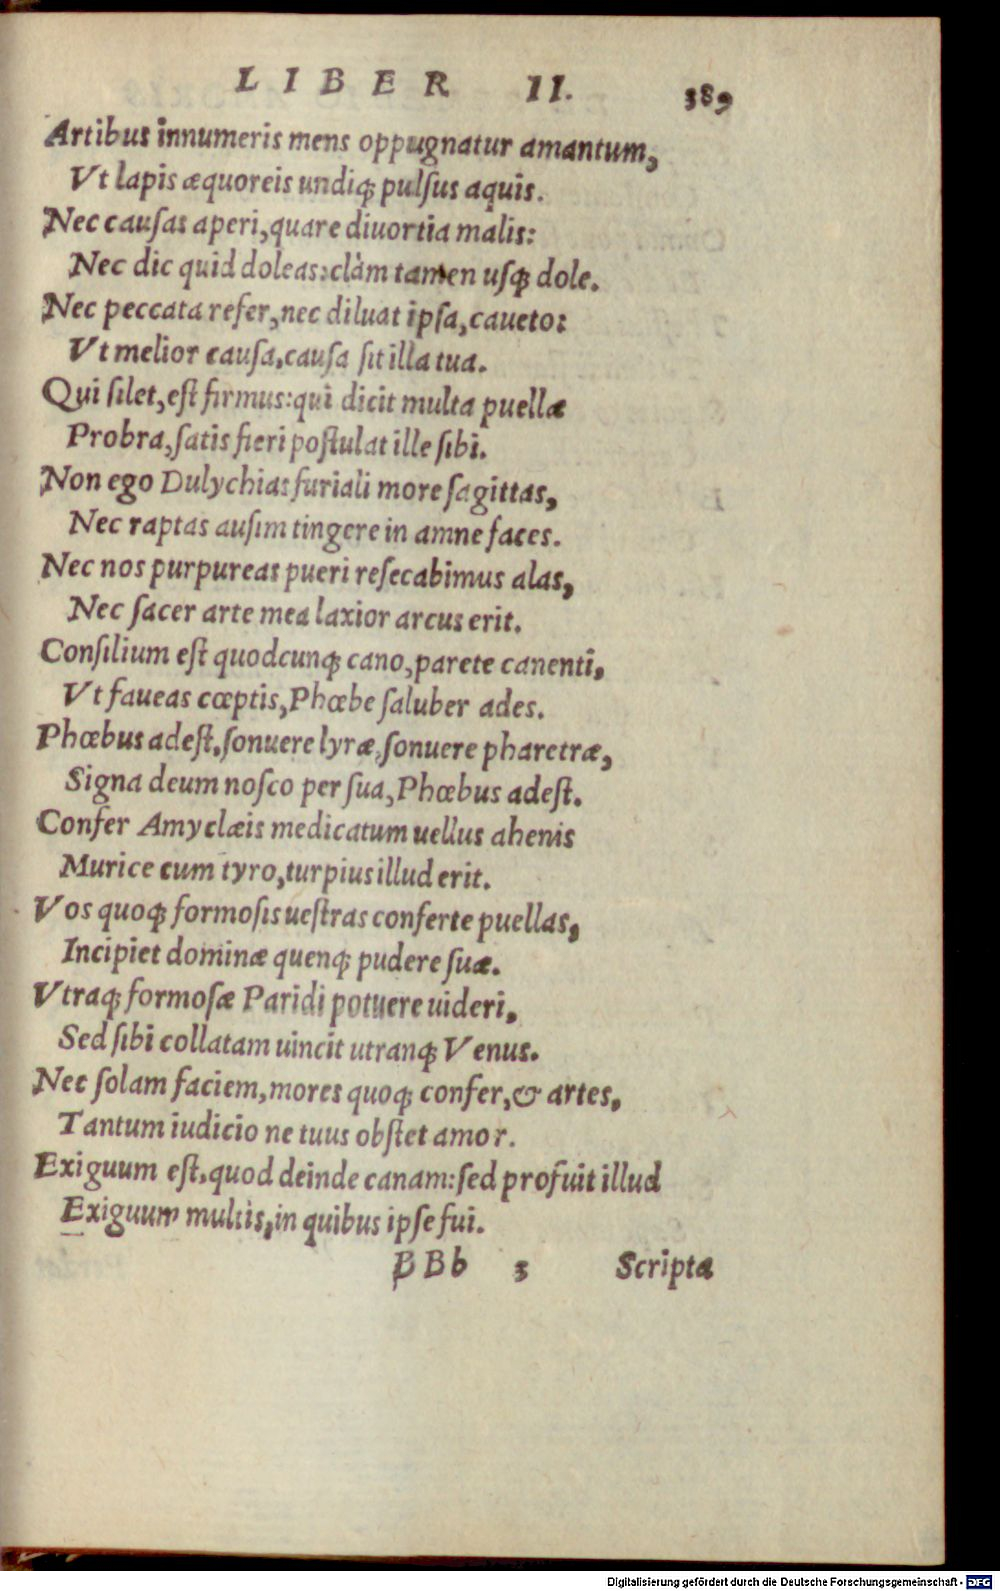 LIBER II. 389
Artibus innumeris mens oppugnatur amantum,
Vt lapis æquoreis undiq; pulſus aquis.
Nec cauſas aperi, quare diuortia malis:
Nec dic quid doleas: clàm tamen uſq; dole.
Nec peccata refer, nec diluat ipſa, caueto:
Vt melior cauſa, cauſa ſit illa tua.
Qui ſilet, eſt firmus: qui dicit multa puellæ
Probra, ſatis fieri poſtulat ille ſibi.
Non ego Dulychias furiali more ſagittas,
Nec raptas auſim tingere in amne faces.
Nec nos purpureas pueri reſecabimus alas,
Nec ſacer arte mea laxior arcus erit.
Conſilium eſt quodcunq; cano, parete canenti,
Vt faueas cœptis, Phœbe ſaluber ades.
Phœbus adeſt, ſonuere lyræ, ſonuere pharetræ,
Signa deum noſco per ſua, Phœbus adeſt.
Confer Amyclæis medicatum uellus ahenis
Murice cum tyro, turpius illud erit.
Vos quoq; formoſis ueſtras conferte puellas,
Incipiet dominæ quenq; pudere ſuæ.
Vtraq; formoſæ Paridi potuere uideri,
Sed ſibi collatam uincit utranq; Venus.
Nec ſolam faciem, mores quoq; confer, & artes,
Tantum iudicio ne tuus obſtet amor.
Exiguum eſt, quod deinde canam: ſed profuit illud
Exiguum multis, in quibus ipſe fui.
BBb 3 Scripta
Digitalisierung gefördert durch die Deutsche Forschungsgemeinschaft - DFG